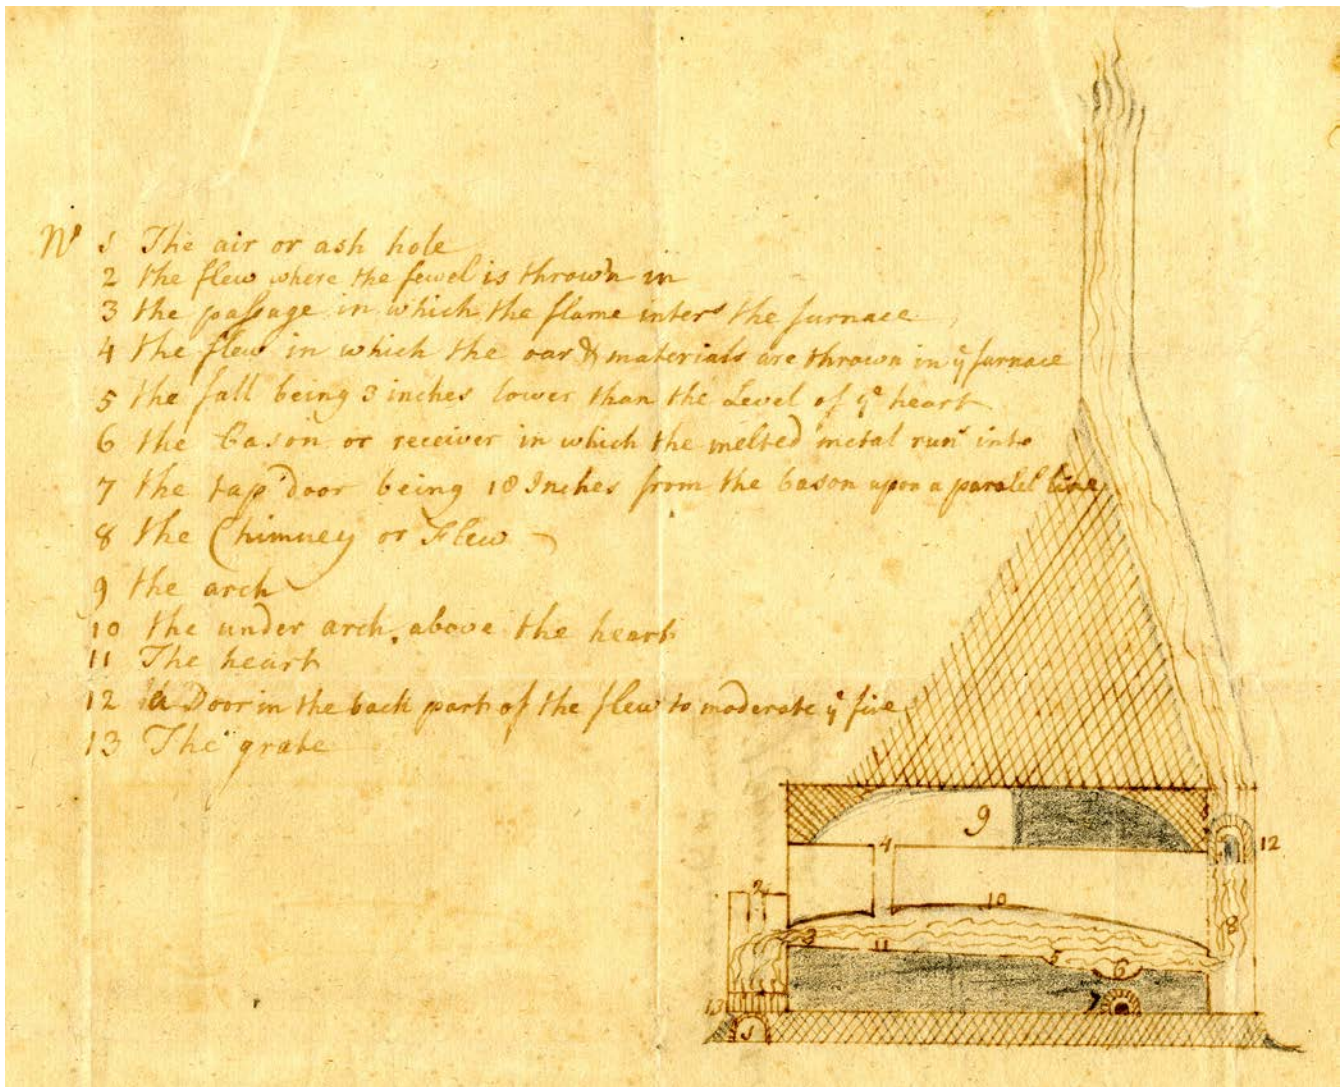 No 1 The air or ash hole
2 the flew where the fewel is thrown in
3 the passage in which the flame inters the furnace
4 the flew in which the oar & materials are thrown in ye furnace
5 the fall being 3 inches lower than the Level of ye heart
6 the bason or receiver in which the melted metal runs into
7 the tap door being 18 Inches from the bason upon a paralel line
8 the Chimney or Flew
9 the arch
10 the under arch, above the heart
11 The heart
12 a Door in the back part of the flew to moderate ye fire
13 The grate
9
4
12
2
10
8
3
11
5
6
13
7
1